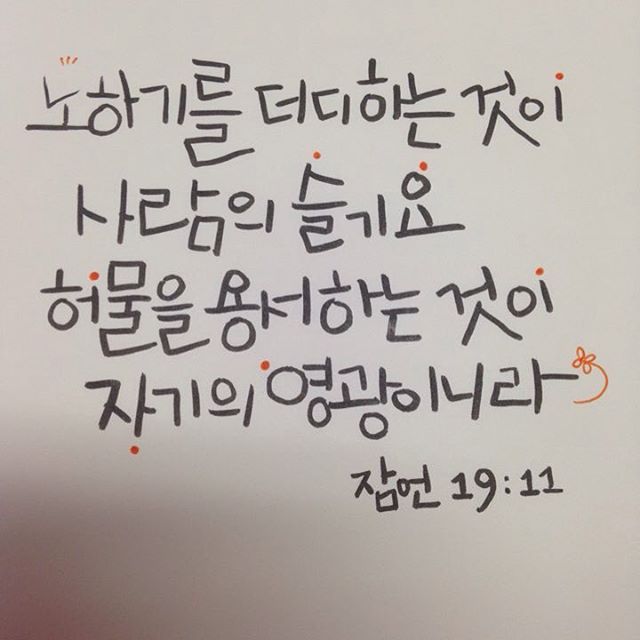 노하기를 더디하는 것이
사람의 슬기요
허물을 용서하는 것이
자기의 영광이니라
잠언 19:11